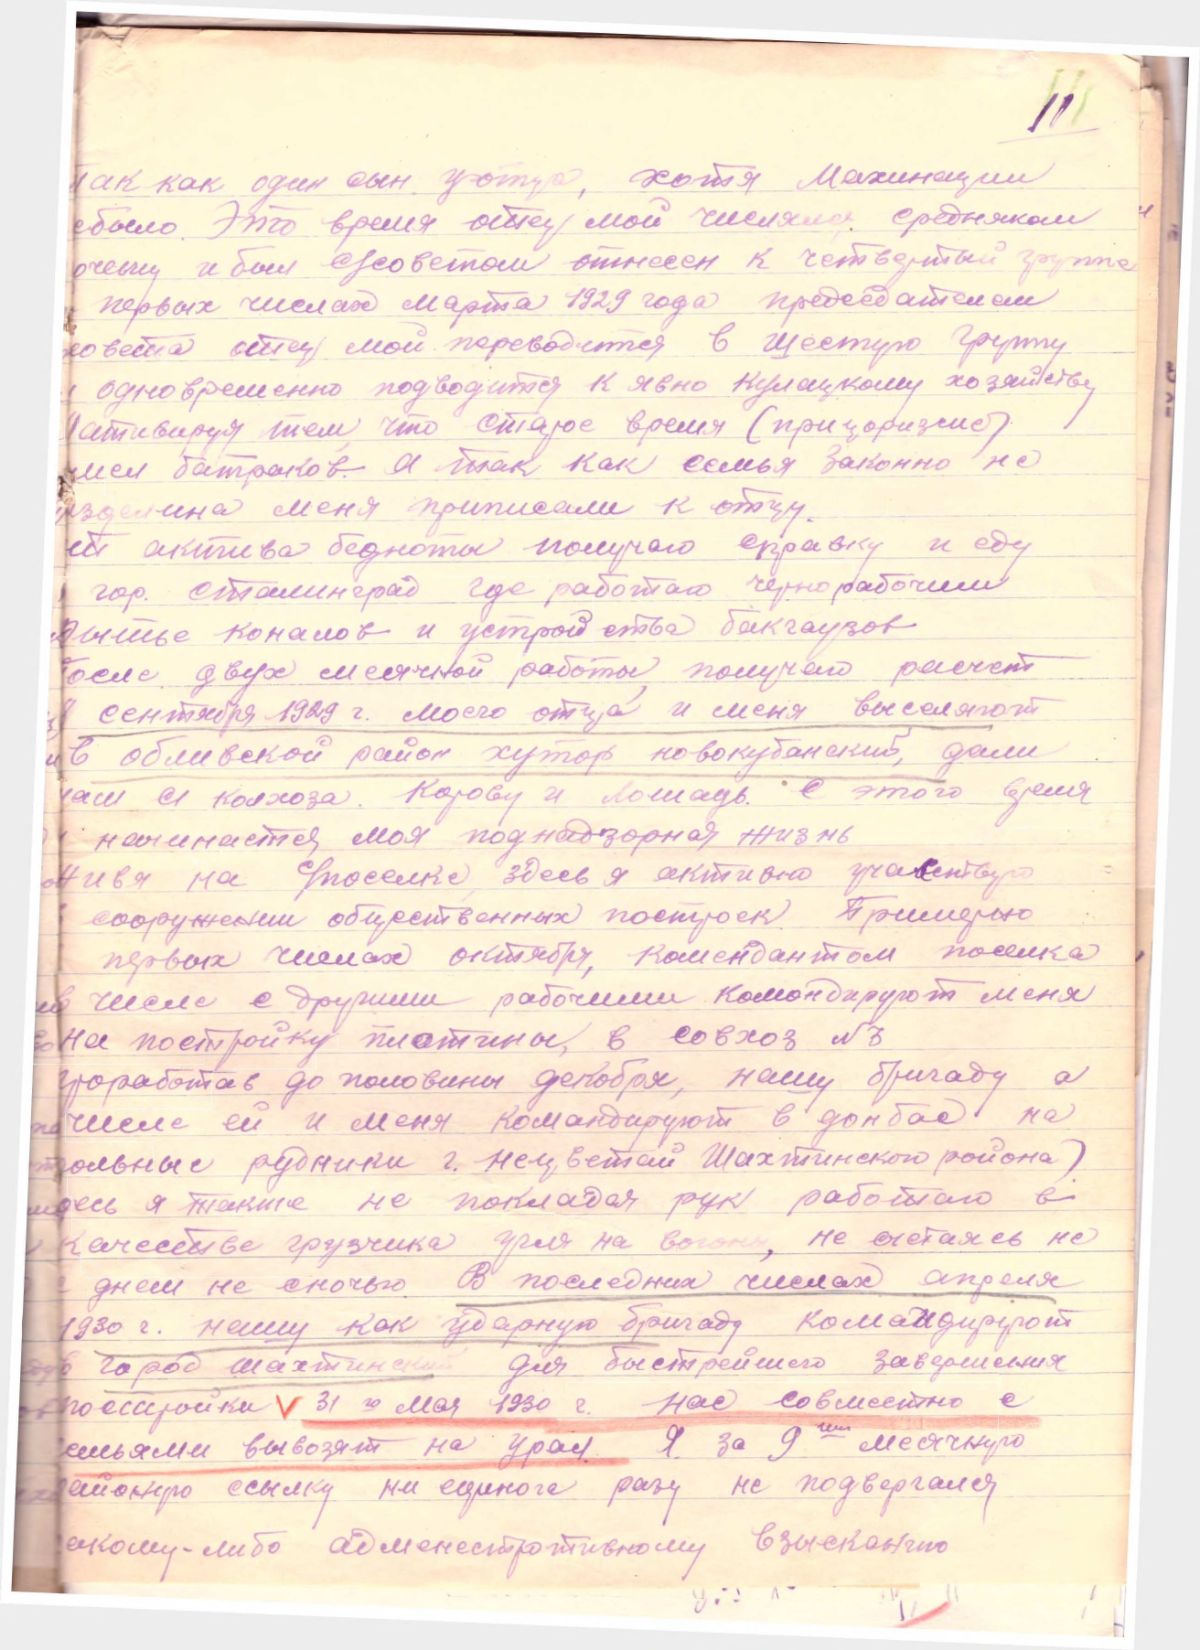 11
так как один сын у отца, хотя Махинации
ебыло. Это время отец мой числялся середняком
очему и был с/советом отнесен к четвертый группе
первых числах марта 1929 года председателем
совета отец мой переводится в шестую группу
и одновременно подводится к явно кулацкому хозяйству
Мативируя тем, что старое время (прицаризме)
имел батраков. А так как семья законно не
азделина меня приписали к отцу.
от актива бедноты получаю справку и еду
гор. Сталинград где работаю чернорабочим
рытье коналов и устройства бакгаузов
После двух месячной работы, получаю расчет
8 сентября 1929 г. моего отца и меня выселяют
в обливской район хутор новокубанский, дали
нам с колхоза. Корову и Лошадь. С этого время
начинается моя поднадзорная жизнь
живя на с/поселке, здесь я активно участвую
сооружении общественных построек Примерно
первых числах октября, комендантом поселка
в числе с другими рабочими командируют меня
на постройку плотины, в совхоз №3
проработав до половины декобря, нашу бригаду а
числе ей и меня командируют в донбас на
угольные рудники г. несветай Шахтинского района)
здесь я также не покладая рук работаю в
качестве грузчика угля на вогоны, не счетаясь не
с днем не сночью. В последних числах апреля
1930 г. нашу как ударную бригаду командируют
город шахтинский для быстрейшего завершения
постройки V 31 го Мая 1930 г. нас совместно с
семьями вывозят на Урал. Я за 9ти месячную
районную ссылку ни единого разу не подвергался
какому-либо администротивному взысканию